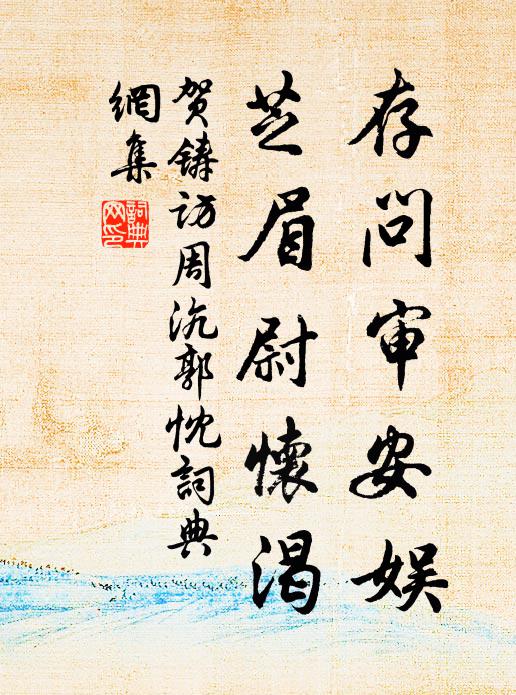 存问审安娱
芝眉尉懷渴
贺铸访周沆郭忱詞典
網集
詞典
网印